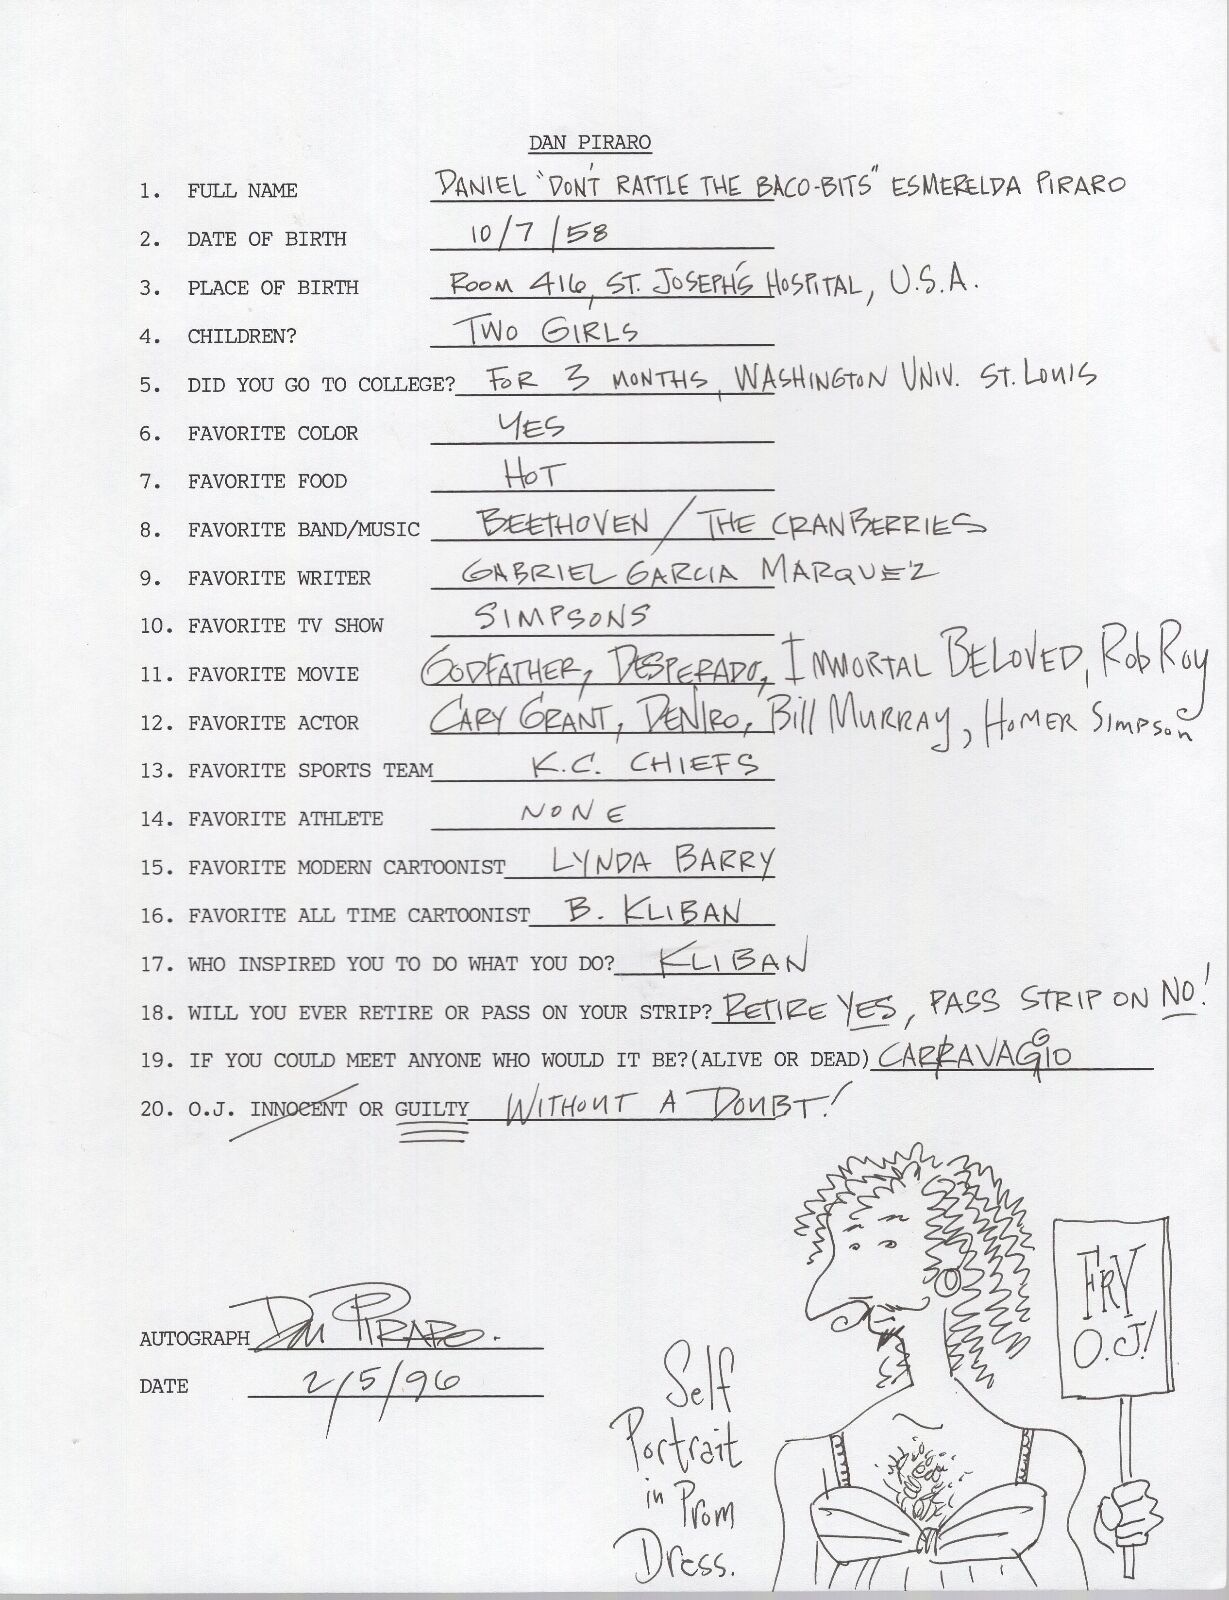 DAN PIRARO
1. FULL NAME DANIEL "DON'T RATTLE THE BACO-BITS" ESMERELDA PIRARO
2. DATE OF BIRTH 10/7/58
3. PLACE OF BIRTH ROOM 416, ST. JOSEPH'S HOSPITAL, U.S.A.
4. CHILDREN? TWO GIRLS
5. DID YOU GO TO COLLEGE? FOR 3 MONTHS, WASHINGTON UNIV. ST. LOUIS
6. FAVORITE COLOR YES
7. FAVORITE FOOD HOT
8. FAVORITE BAND/MUSIC BEETHOVEN / THE CRANBERRIES
9. FAVORITE WRITER GABRIEL GARCIA MARQUE'Z
10. FAVORITE TV SHOW SIMPSONS
11. FAVORITE MOVIE GODFATHER, DESPERADO, IMMORTAL BELOVED, Rob Roy
12. FAVORITE ACTOR CARY GRANT, DENIRO, Bill MURRAY, HOMER SIMPSON
13. FAVORITE SPORTS TEAM K.C. CHIEFS
14. FAVORITE ATHLETE NONE
15. FAVORITE MODERN CARTOONIST LYNDA BARRY
16. FAVORITE ALL TIME CARTOONIST B. KLIBAN
17. WHO INSPIRED YOU TO DO WHAT YOU DO? KLIBAN
18. WILL YOU EVER RETIRE OR PASS ON YOUR STRIP? RETIRE YES, PASS STRIP ON NO!
19. IF YOU COULD MEET ANYONE WHO WOULD IT BE?(ALIVE OR DEAD) CARAVAGGIO
20. O.J. INNOCENT OR GUILTY WITHOUT A DOUBT!
AUTOGRAPH DAN PIRARO.
DATE 2/5/96
Self
Portrait
in Prom
Dress.
FRY
O.J.!